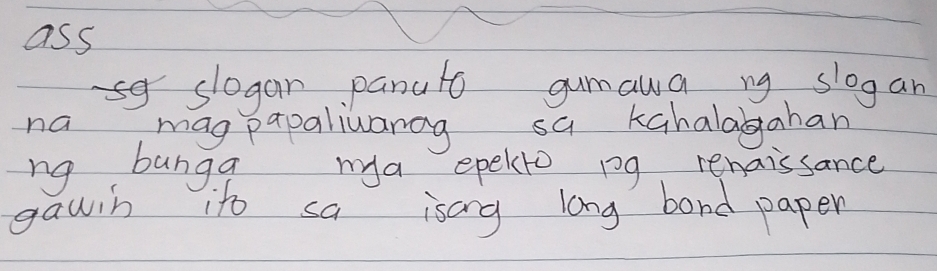 ass
sg slogan panuto gumawa ng slogan
na magpapaliwanag sa kahalagahan
ng bunga mga epekto ng renaissance
gawin ito sa isang long bond paper